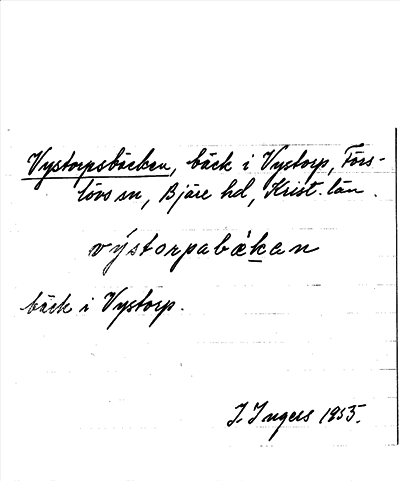 Vystorpsbäcken, bäck i Vystorp, Förs-
lövs sn, Bjäre hd, Krist. län.
výstorpabækan
bäck i Vystorp.
I. Ingers 1955.